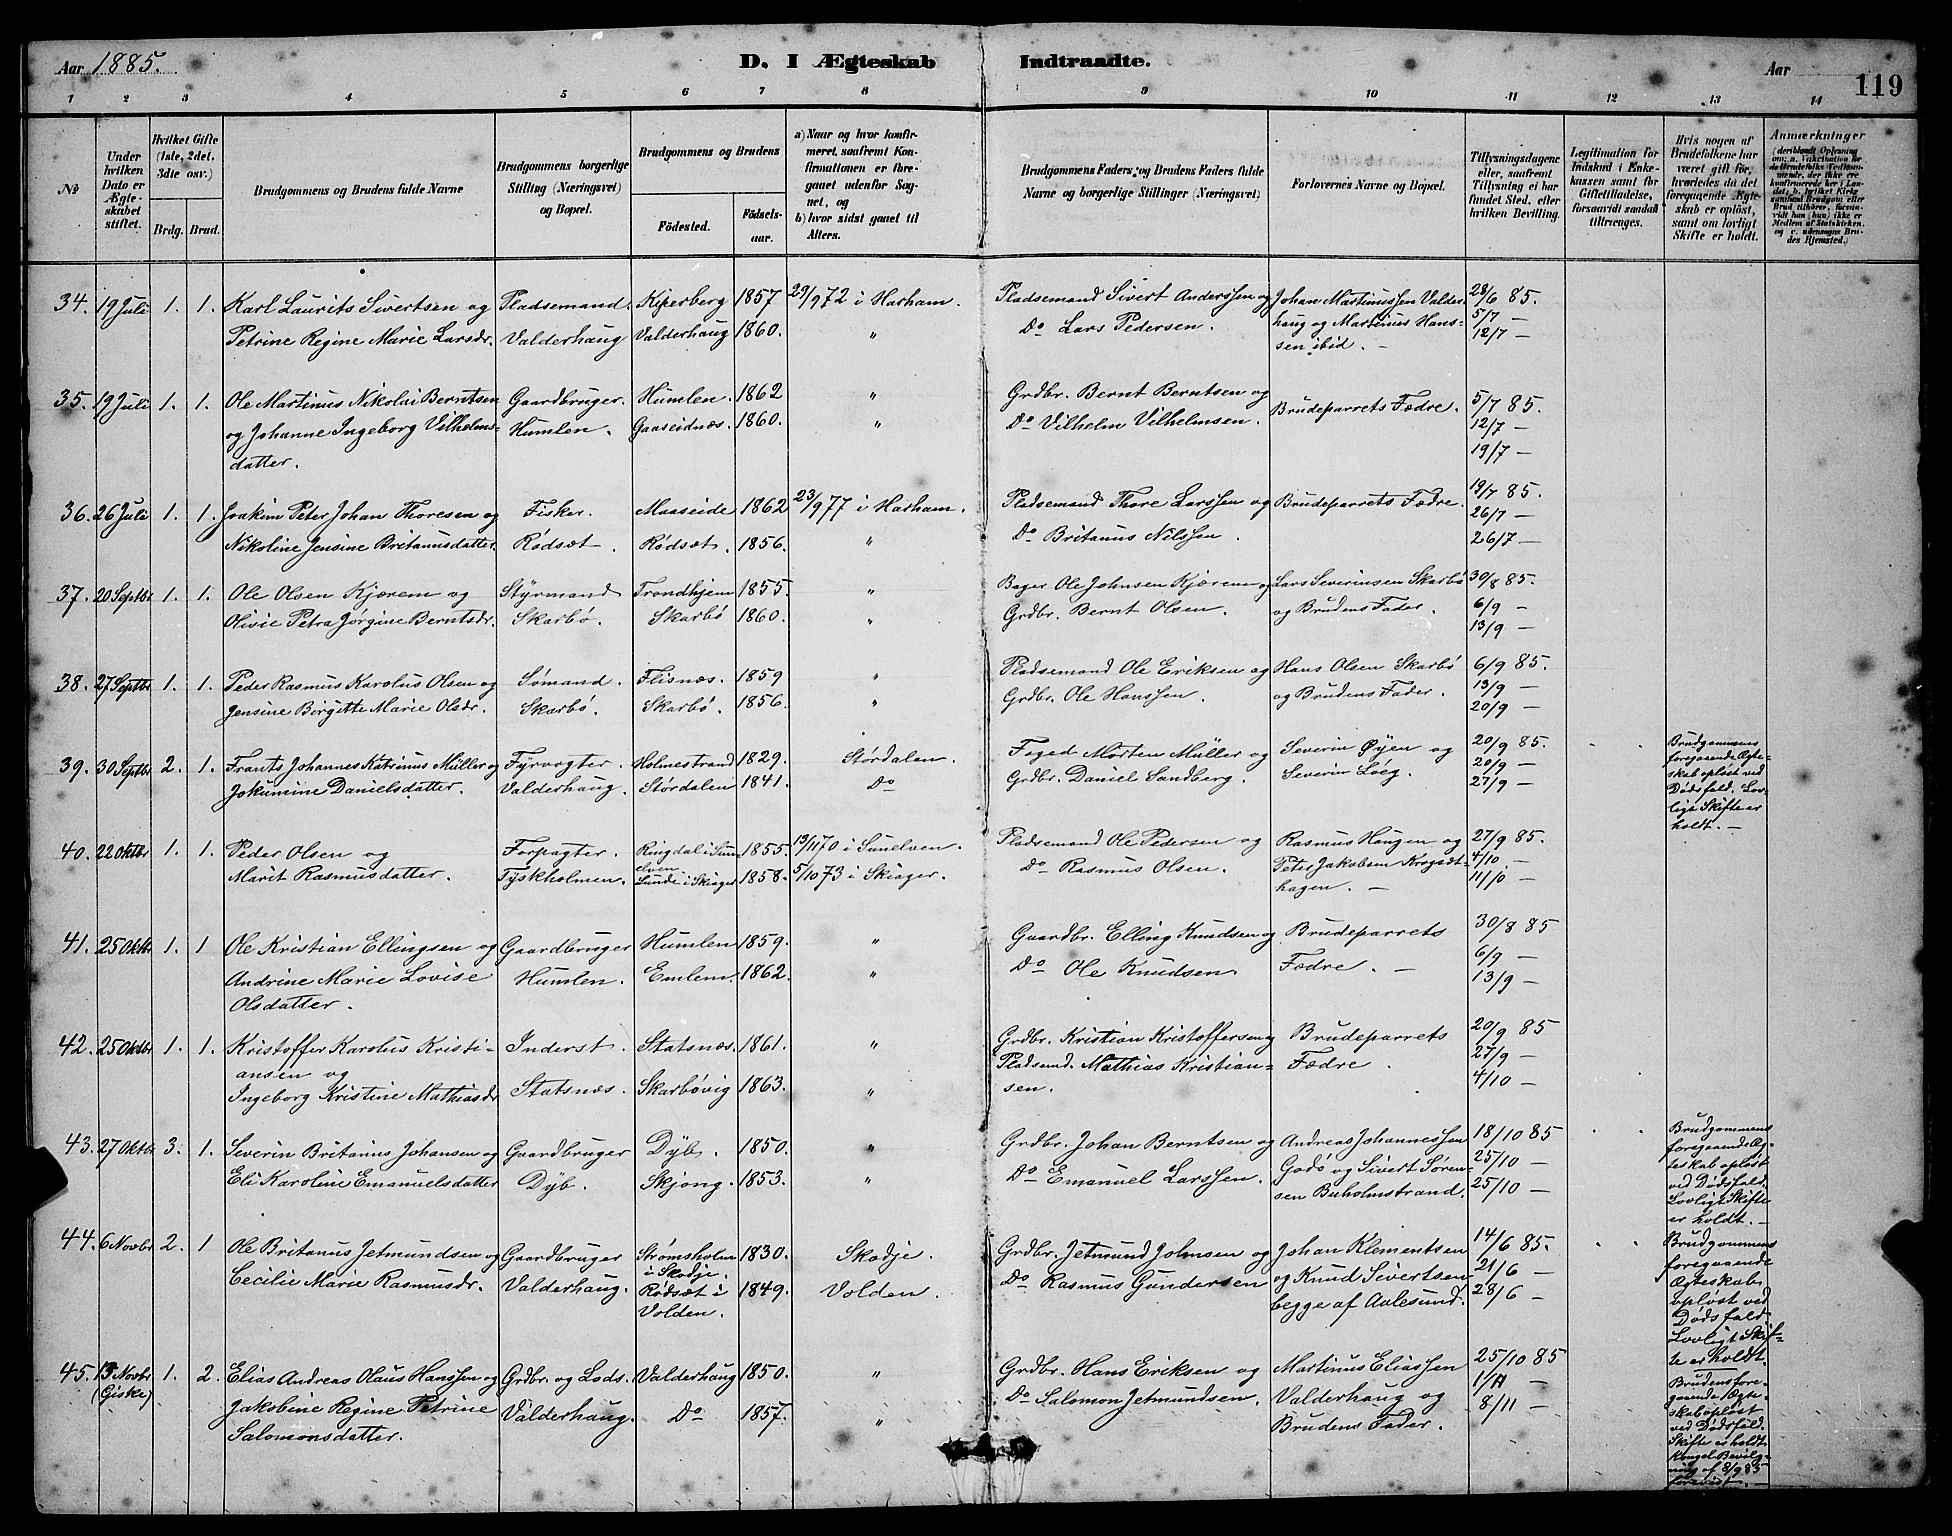 Aar 1885.
D. I Ægteskab Indtraadte.
Aar
119
1 2 3 4 5 6 7 8 9 10 11 12 13 14
№
Under hvilken Dato er Ægteskabet stiftet.
Hvilket Gifte (1ste, 2det, 3die osv.)
Brdg. Brud.
Brudgommens og Brudens fulde Navne
Brudgommens borgerlige Stilling (Næringsvei) og Bopæl.
Brudgommens og Brudens
Fødested.
Fødselsaar.
a) Naar og hvor konfirmeret, saafremt Konfirmationen er foregaaet udenfor Sognet, og
b) hvor sidst gaaet til Alters.
Brudgommens Faders og Brudens Faders fulde Navne og borgerlige Stillinger (Næringsvei)
Forlovernes Navne og Bopæl.
Tillysningsdagene eller, saafremt Tillysning ei har fundet Sted, efter hvilken Bevilling.
Legitimation for Indskud i Enkekassen samt for Giftetilladelse, forsaavidt saadan tiltrænges.
Hvis nogen af Brudefolkene har været gift før, hvorledes da det foregaaende Ægteskab er opløst, samt om lovligt Skifte er holdt.
Anmærkninger
34. 19 Juli 1. 1. Karl Laurits Sivertsen og Pladsemand. Kiperberg 1857 29/9 72 i Harham. Pladsemand Sivert Anderssen og Johan Martinussen Valder- 28/6 85.
Petrine Regine Marie Larsdr. Valderhaug Valderhaug 1860. " Do Lars Pedersen. haug og Martinus Hans- 5/7 —
sen ibid. — 12/7 —
35. 19 Juli 1. 1. Ole Martinus Nikolai Berntsen Gaardbruger. Humlen. 1862 " Grdbr. Bernt Berntsen og Brudeparrets Fædre. 5/7 85.
og Johanne Ingeborg Vilhelms- Humlen. Gaaseidnæs. 1860. " Do Vilhelm Vilhelmsen. 12/7 —
datter. 19/7 —
36. 26 Juli 1. 1. Joakim Peter Johan Thoresen og Fisker. Maaseide 1862 23/9 77 i Harham. Pladsemand Thore Larssen og Brudeparrets Fædre. 19/7 85.
Nikoline Jensine Britanusdatter. Rødsæt. Rødsæt. 1856. " Do Britanus Nilssen. 26/7 —
26/7 —
37. 20 Septbr 1. 1. Ole Olsen Kjærem og Styrmand Trondhjem 1855. " Bager Ole Johnsen Kjærem og Lars Severinsen Skarbø 30/8 85.
Olivie Petra Jørgine Berntsdr. Skarbø. Skarbø 1860. " Grdbr. Bernt Olsen. og Brudens Fader. 6/9 —
13/9 —
38. 27 Septbr 1. 1. Peder Rasmus Karolus Olsen og Sømand. Flisnæs. 1859 " Pladsemand Ole Eriksen og Hans Olsen Skarbø 6/9 85.
Jensine Birgitte Marie Olsdr. Skarbø. Skarbø. 1856. " Grdbr. Ole Hanssen. og Brudens Fader. 13/9 —
20/9 —
39. 30 Septbr 2. 1. Frants Johannes Katrinus Müller og Fyrvogter. Holmestrand 1829. Størdalen. Foged Morten Müller og Severin Øyen og 20/9 85. " " Brudgommens
Jokumine Danielsdatter. Valderhaug. Størdalen 1841. Do Grdbr. Daniel Sandberg. Severin Løeg. 20/9 — foregaaende Ægte-
27/9 — skab opløst ved
Dødsfald. Lov-
ligt Skifte er
holdt. —
40. 22 Oktbr 1. 1. Peder Olsen og Forpagter. Ringdal i Sun- 1855. 13/11 70 i Sunelven. Pladsemand Ole Pedersen og Rasmus Haugen og 27/9 85.
elven
Marit Rasmusdatter. Tyskholmen. Sunde i Skiager 1858. 5/10 73 i Skiager. Do Rasmus Olsen. Peter Jakobsen Krogsæt- 4/10. —
hagen. — 11/10 —
41. 25 Oktbr 1. 1 Ole Kristian Ellingsen og Gaardbruger Humlen 1859. " Gaardbr. Elling Knudsen og Brudeparrets 30/8 85
Andrine Marie Lovise Humlen. Emlem. 1862. " Do Ole Knudsen. Fædre. — 6/9 —
Olsdatter. 13/9 —
42. 25 Oktbr 1. 1. Kristoffer Karolus Kristi- Inderst. Statsnæs. 1861. " Grdbr. Kristian Kristoffersen og Brudeparrets 20/9 85
ansen og Pladsmd. Mathias Kristian- Fædre. 27/9 —
Ingeborg Kristine Mathiasdr Statsnæs. Skarbøvig 1863. " sen. 4/10 —
43. 27 Oktbr 3. 1. Severin Britanus Johansen og Gaardbruger Dyb. 1850. " Grdbr. Johan Berntsen og Andreas Johannessen 18/10 85 " " Brudgommens
Eli Karoline Emanuelsdatter Dyb. Skjong. 1853. " Do Emanuel Larssen. Godø og Sivert Søren- 25/10 — foregaaende Æg-
sen Buholmstrand. 25/10 — teskab opløst
ved Dødsfald.
Lovligt Skifte
er holdt. —
44. 6 Novbr 2. 1 Ole Britanus Jetmundsen og Gaardbruger Strømsholm 1830. Skodje. Grdbr. Jetmund Johnsen og Johan Klementsen 14/6 85. " " Brudgommens
i Skodje.
Cecilie Marie Rasmusdr. Valderhaug. Rødsæt i 1849. Volden. Do Rasmus Gundersen og Knud Sivertsen 21/6 — foregaaende
Volden. begge af Aalesund. 28/6 — Ægteskab
opløst ved
Dødsfald.
Lovligt Skif-
te er holdt.
45. 13 Novbr 1. 2. Elias Andreas Olaus Hanssen og Grdbr. og Lods. Valderhaug 1850. " Grdbr. Hans Eriksen og Martinus Eliassen 25/10 85
(Giske) Jakobine Regine Petrine Valderhaug. Do 1857. " Do Salomon Jetmundsen. Valderhaug og 1/11 —
Salomonsdatter. Brudens Fader. 8/11 —
Brudens fore-
gaaende Ægte-
skab opløst
ved Dødsfald.
Skifte er holdt
Kongel. Bevilg-
ning af 8/9 85
forevist. —